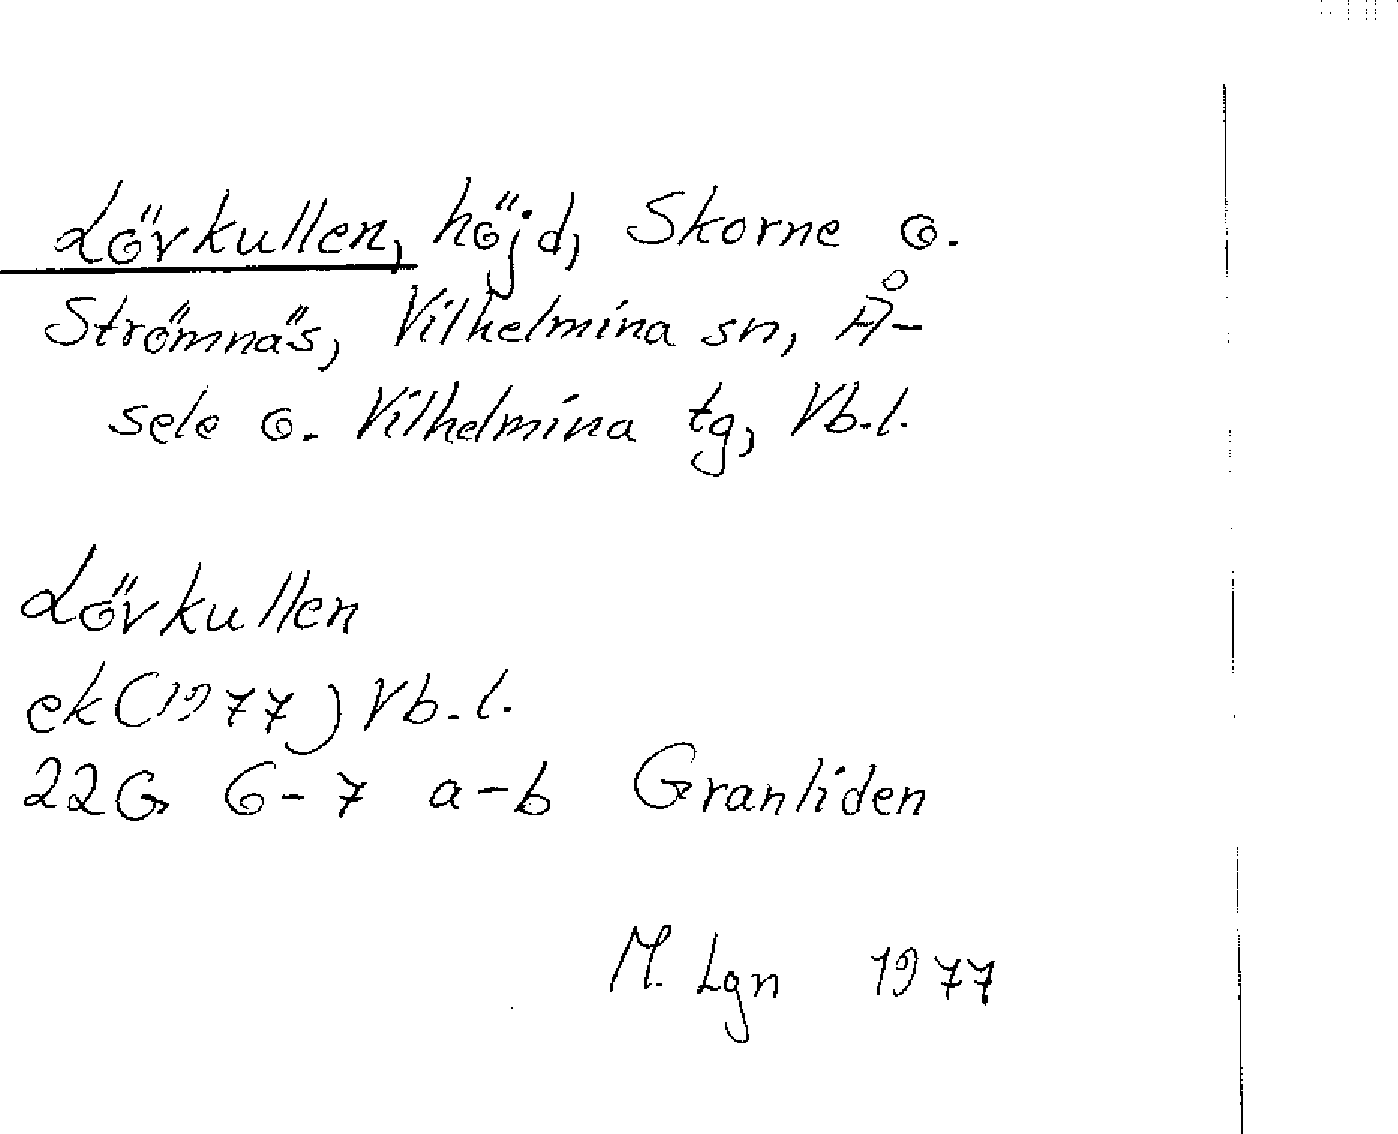 Lövkullen, höjd, Skorne o.
Strömnäs, Vilhelmina sn, Å-
sele o. Vilhelmina tg, Vb.l.
Lövkullen
ek (1977) Vb.l.
22G 6-7 a-b Granliden
M. Lgn 1977